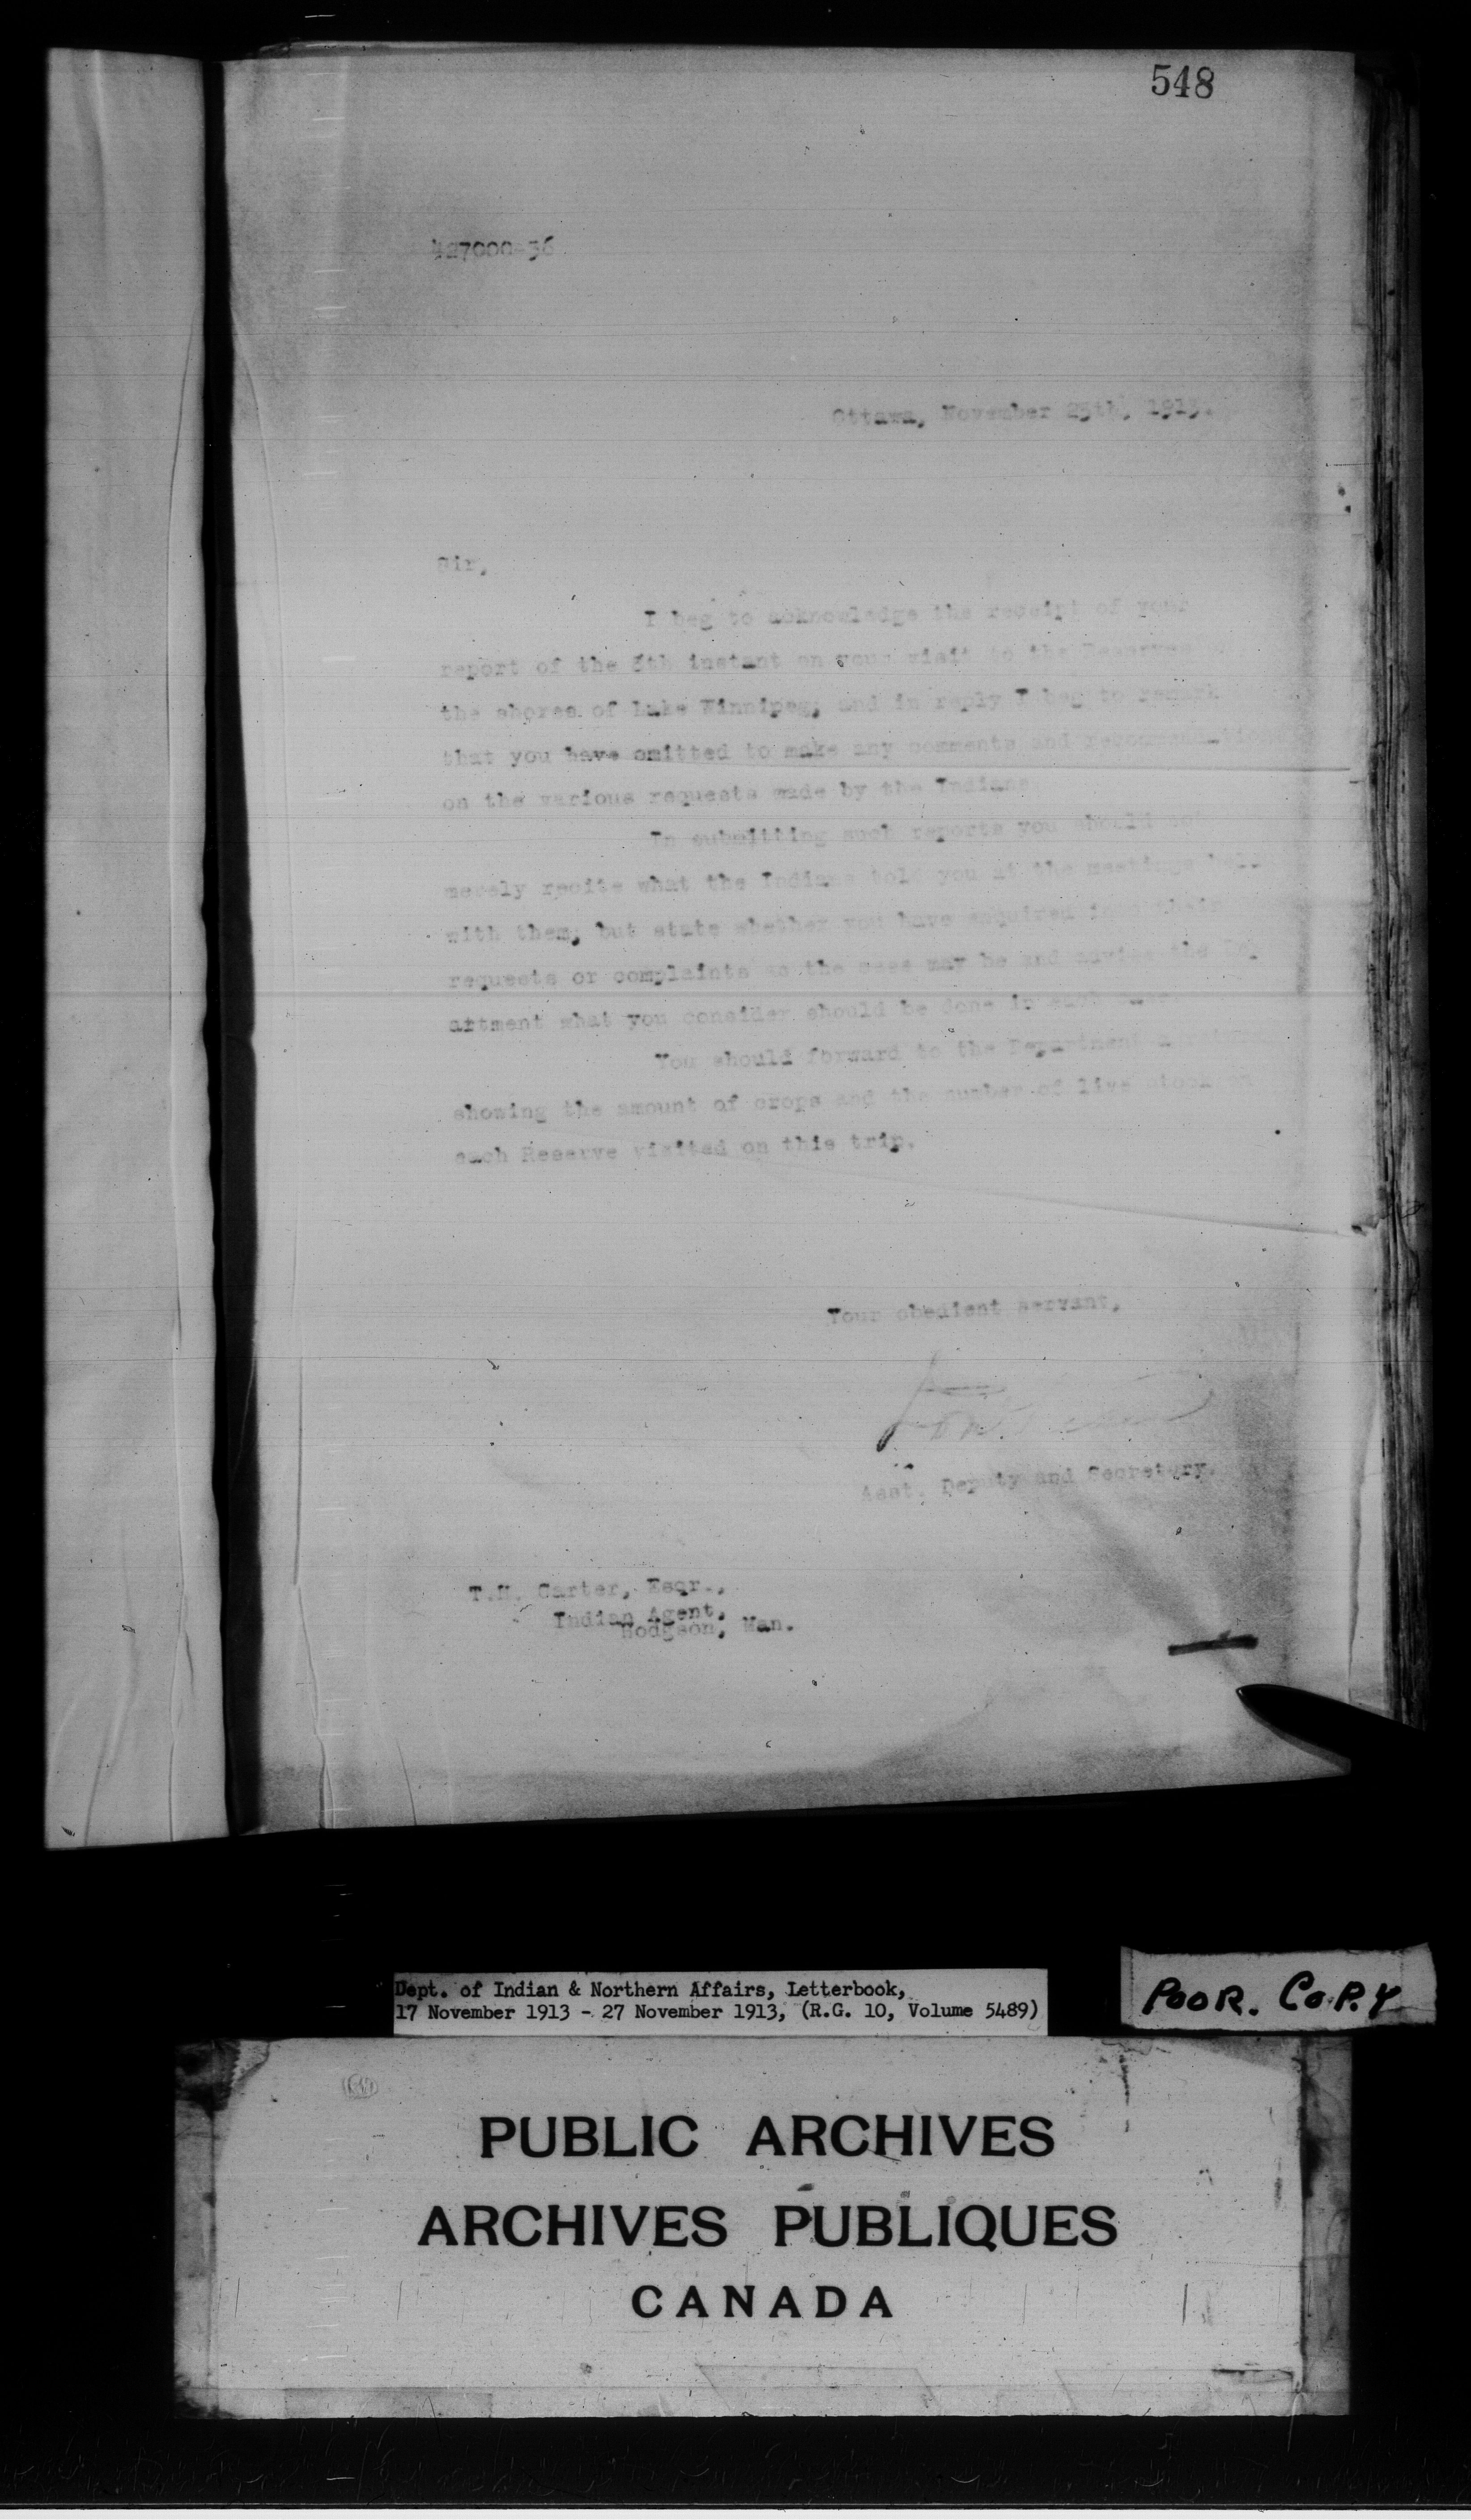 548
427000-36
Ottawa, November 25th, 1913.
Sir,
I beg to acknowledge the receipt of your
report of the 8th instant on your visit to the Reserves on
the shores of Lake Winnipeg; and in reply I beg to remark
that you have omitted to make any comments and
on the various requests made by the Indians.
In submitting such reports you should not
merely recite what the Indians told you at the meetings
with them; but state whether you have enquired into their
requests or complaints as the case may be and advise the
artment what you consider should be done in each case.
You should forward to the Department
showing the amount of crops and the number of live stock on
each Reserve visited on this trip.
Your obedient servant,
Asst. Deputy and Secretary.
T.H. Carter, Esqr.,
Indian Agent,
Hodgson, Man.
Dept. of Indian & Northern Affairs, Letterbook,
17 November 1913 - 27 November 1913, (R.G. 10, Volume 5489)
POOR. COPY
PUBLIC ARCHIVES
ARCHIVES PUBLIQUES
CANADA